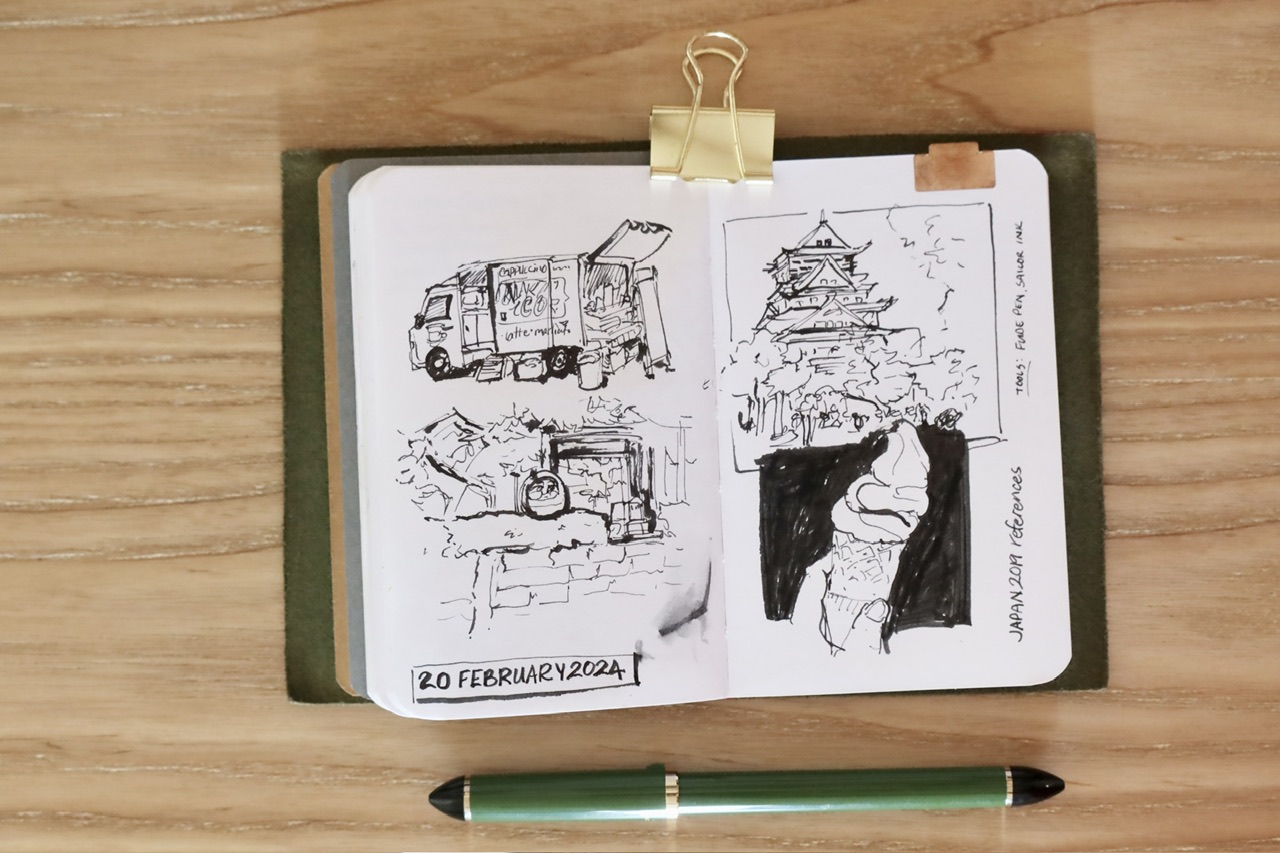 cappuccino
latte
20 FEBRUARY 2024
TOOLS: FUDE PEN, SAILOR INK
JAPAN 2019 references